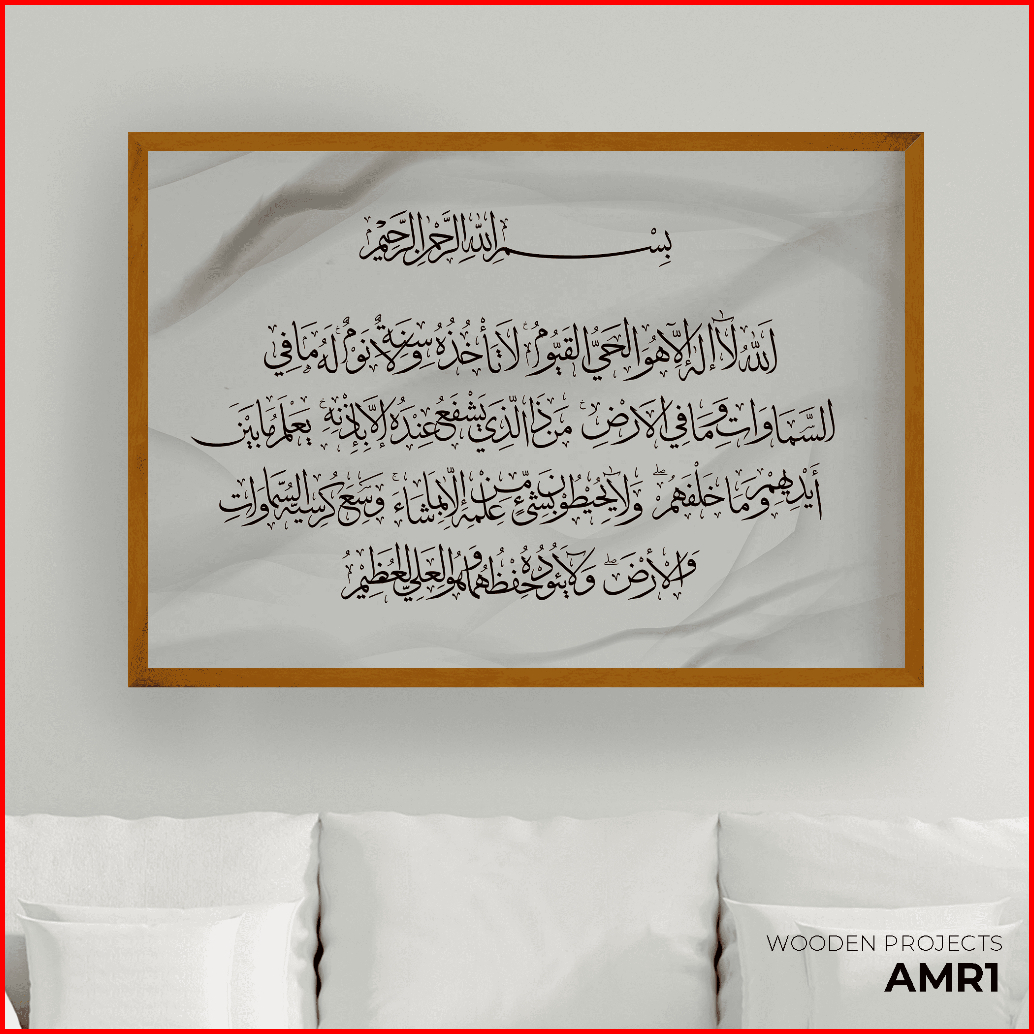 بِسْمِ اللهِ الرَّحْمٰنِ الرَّحِيْمِ
اَللهُ لَاۤ اِلٰهَ اِلَّا هُوَ الْحَيُّ الْقَيُّوْمُ ۚ لَا تَأْخُذُهُ سِنَةٌ وَلَا نَوْمٌ ۚ لَهُ مَا فِي
السَّمَاوَاتِ وَمَا فِي الْاَرْضِ ۚ مَنْ ذَا الَّذِي يَشْفَعُ عِنْدَهُ إِلَّا بِإِذْنِهِ ۚ يَعْلَمُ مَا بَيْنَ
أَيْدِيهِمْ وَمَا خَلْفَهُمْ ۖ وَلَا يُحِيْطُوْنَ بِشَيْءٍ مِّنْ عِلْمِهِ إِلَّا بِمَا شَاءَ ۚ وَسِعَ كُرْسِيُّهُ السَّمَاوَاتِ
وَالْأَرْضَ ۖ وَلَا يَئُودُهُ حِفْظُهُمَا وَهُوَ الْعَلِيُّ الْعَظِيْمُ
WOODEN PROJECTS
AMR1